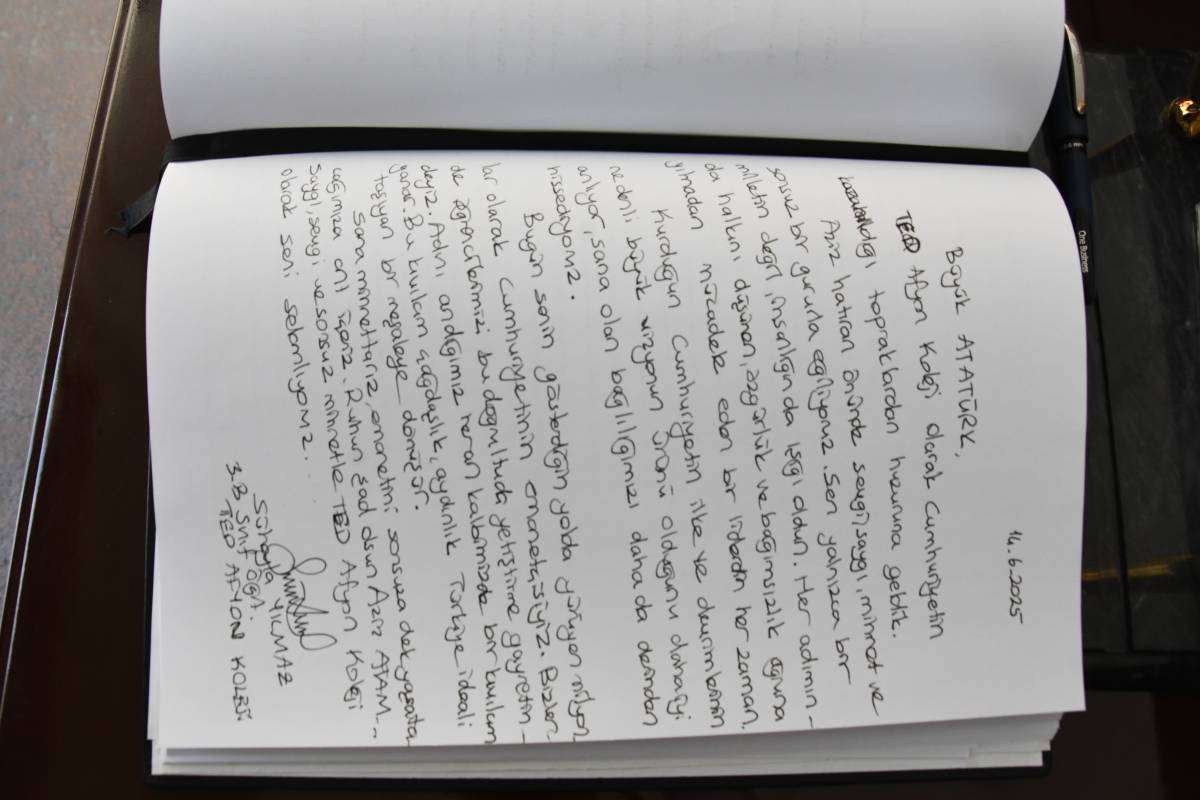 14.6.2025
Büyük ATATÜRK,
TED Afyon Koleji olarak Cumhuriyetin
kazanıldığı topraklardan huzuruna geldik.
Aziz hatıran önünde sevgi, saygı, minnet ve
sonsuz bir gururla eğiliyoruz. Sen yalnızca bir
milletin değil, insanlığın da ışığı oldun. Her adımın-
da halkını düşünen, özgürlük ve bağımsızlık uğruna
yılmadan mücadele eden bir liderdin her zaman.
Kurduğun Cumhuriyetin ilke ve devrimlerinin
nedenli büyük vizyonun ürünü olduğunu daha iyi
anlıyor, sana olan bağlılığımızı daha da derinden
hissediyoruz.
Bugün senin gösterdiğin yolda yürüyen milyon-
lar olarak Cumhuriyetinin emanetçisiyiz. Bizler
de öğrencilerimizi bu doğrultuda yetiştirme gayretin-
deyiz. Adını andığımız her an kalbimizde bir kıvılcım
yanar. Bu kıvılcım çağdaşlık, aydınlık Türkiye ideali
taşıyan bir meşaleye dönüşür.
Sana minnettarız, emanetini sonsuza dek yaşata-
cağımıza ant içeriz. Ruhun şad olsun Aziz ATAM..
Saygı, sevgi ve sonsuz minnetle TED Afyon Koleji
olarak seni selamlıyoruz...
Süheyla YILMAZ
3.B Sınıf Öğrt.
TED AFYON KOLEJİ
One Business